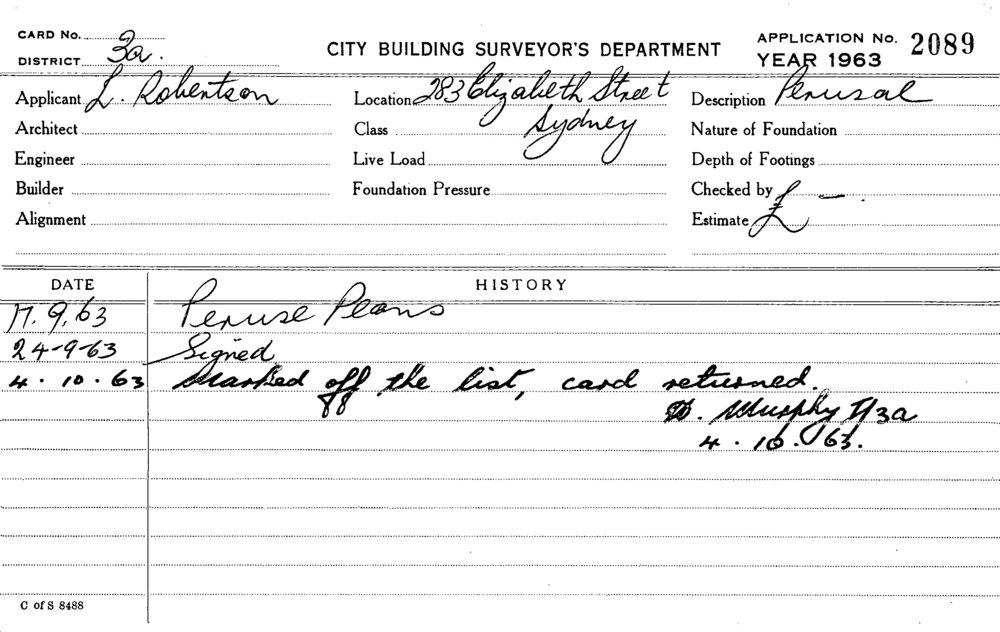 CARD No. 3a.
DISTRICT
CITY BUILDING SURVEYOR'S DEPARTMENT
APPLICATION No. 2089
YEAR 1963
Applicant L. Robertson
Location 283 Elizabeth Street
Sydney
Description Perusal
Architect
Class
Nature of Foundation
Engineer
Live Load
Depth of Footings
Builder
Foundation Pressure
Checked by
Alignment
Estimate £ - .
DATE
HISTORY
17.9.63 Peruse Plans
24-9-63 Signed
4.10.63 Marked off the list, card returned.
D. Murphy 3a
4.10.63.
C of S 8488